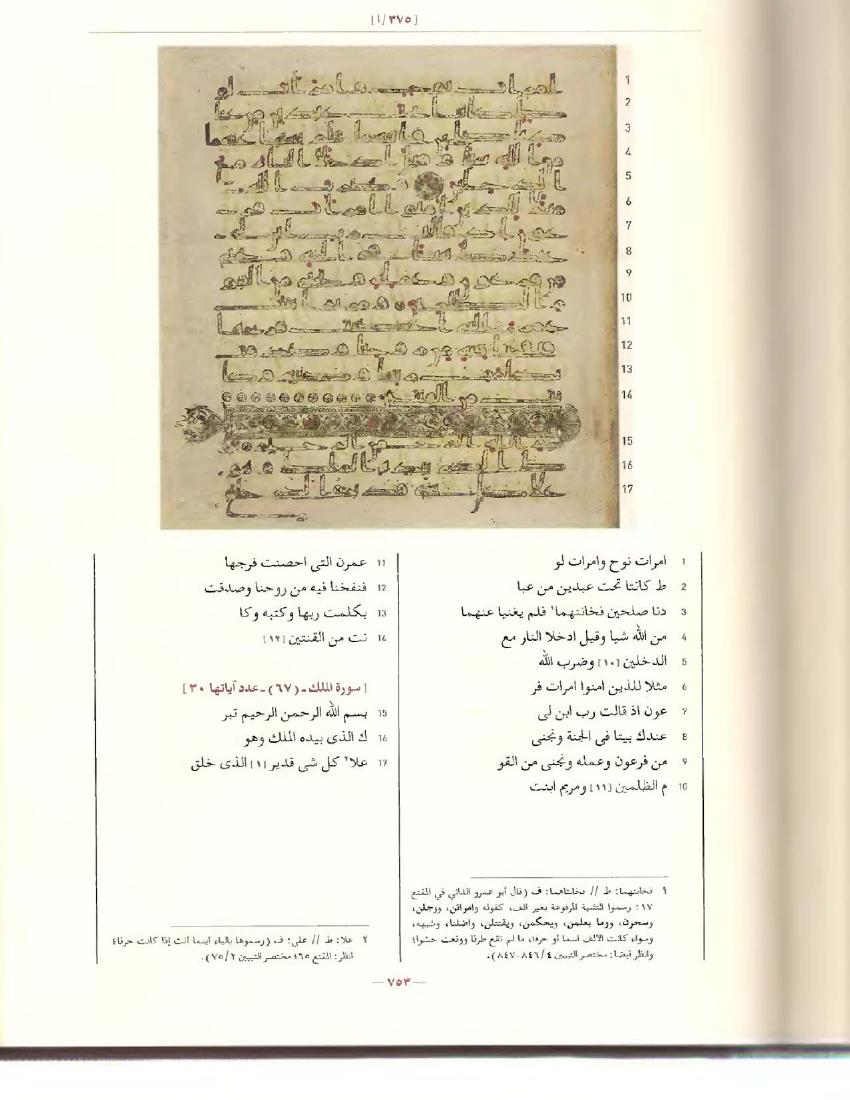 [٣٧٥/١]
1
2
3
4
5
6
7
8
9
10
11
12
13
14
15
16
17
1 امرات نوح وامرات لو
2 ط كانتا تحت عبدين من عبا
3 دنا صلحين فخانتهما١ فلم يغنيا عنهما
4 من الله شيا وقيل ادخلا النار مع
5 الدخلين [١٠] وضرب الله
6 مثلا للذين امنوا امرات فر
7 عون اذ قالت رب ابن لى
8 عندك بيتا فى الجنة ونجنى
9 من فرعون وعمله ونجنى من القو
10 م الظلمين [١١] ومريم ابنت
11 عمرن التى احصنت فرجها
12 فنفخنا فيه من روحنا وصدقت
13 بكلمت ربها وكتبه وكا
14 نت من القنتين [١٢]
[سورة الملك ـ (٦٧) ـ عدد آياتها ٣٠]
15 بسم الله الرحمن الرحيم تبر
16 ك الذى بيده الملك وهو
17 علا٢ كل شى قدير [١] الذى خلق
١ فخانتهما: ط // فخانتاهما: ف (قال أبو عمرو الداني في المقنع
١٧: رسموا التثنية المرفوعة بغير ألف، كقوله وامراتن، ورجلن،
وسحرن، وما يعلمن، ويحكمن، ويقتتلن، واضلنا، وشبهه،
وسواء كانت الألف اسما أو حرفا، ما لم تقع طرفا ووقعت حشوا؛
وانظر أيضا: مختصر التبيين ٤/ ٨٤٦-٨٤٧).
٢ علا: ط // على: ف (رسموها بالياء أينما أتت إذا كانت حرفا؛
انظر: المقنع ٦٥؛ مختصر التبيين ٢/ ٧٥).
— ٧٥٣ —